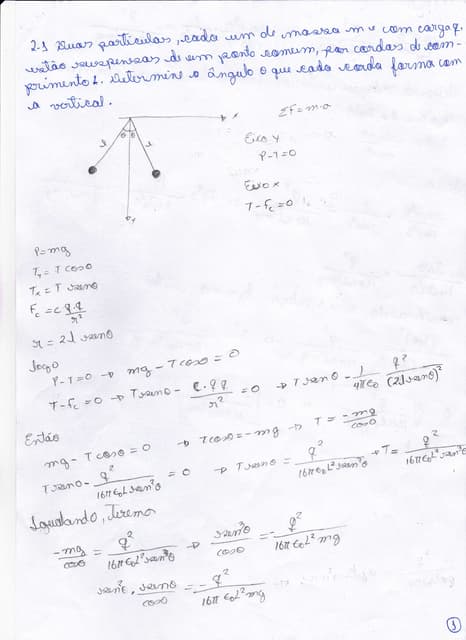 2-1 Duas partículas, cada um de massa m e com carga q,
estão suspensas de um ponto comum, por cordas de com-
primento L. Determine o ângulo θ que cada corda forma com
a vertical.
x
ΣF=m·a
Eixo y
P-T=0
l θ θ l
Eixo x
T-Fc=0
y
P=mg
Ty=T cosθ
Tx=T senθ
Fc=c q.q/r²
r=2l senθ
logo
P-T=0 → mg-Tcosθ=0
T-Fc=0 → Tsenθ- c.qq/r² =0 → Tsenθ- 1/4πε0 q²/(2lsenθ)²
Então
mg-Tcosθ=0 → Tcosθ=-mg → T= -mg/cosθ
Tsenθ- q²/16πε0L sen²θ =0 → Tsenθ= q²/16πε0L²sen²θ → T= q²/16πε0L²sen³θ
Igualando, teremos
-mg/cosθ = q²/16πε0L²sen³θ → sen³θ/cosθ =- q²/16πε0L²mg
sen²θ . senθ/cosθ = -q²/16πε0L²mg
1